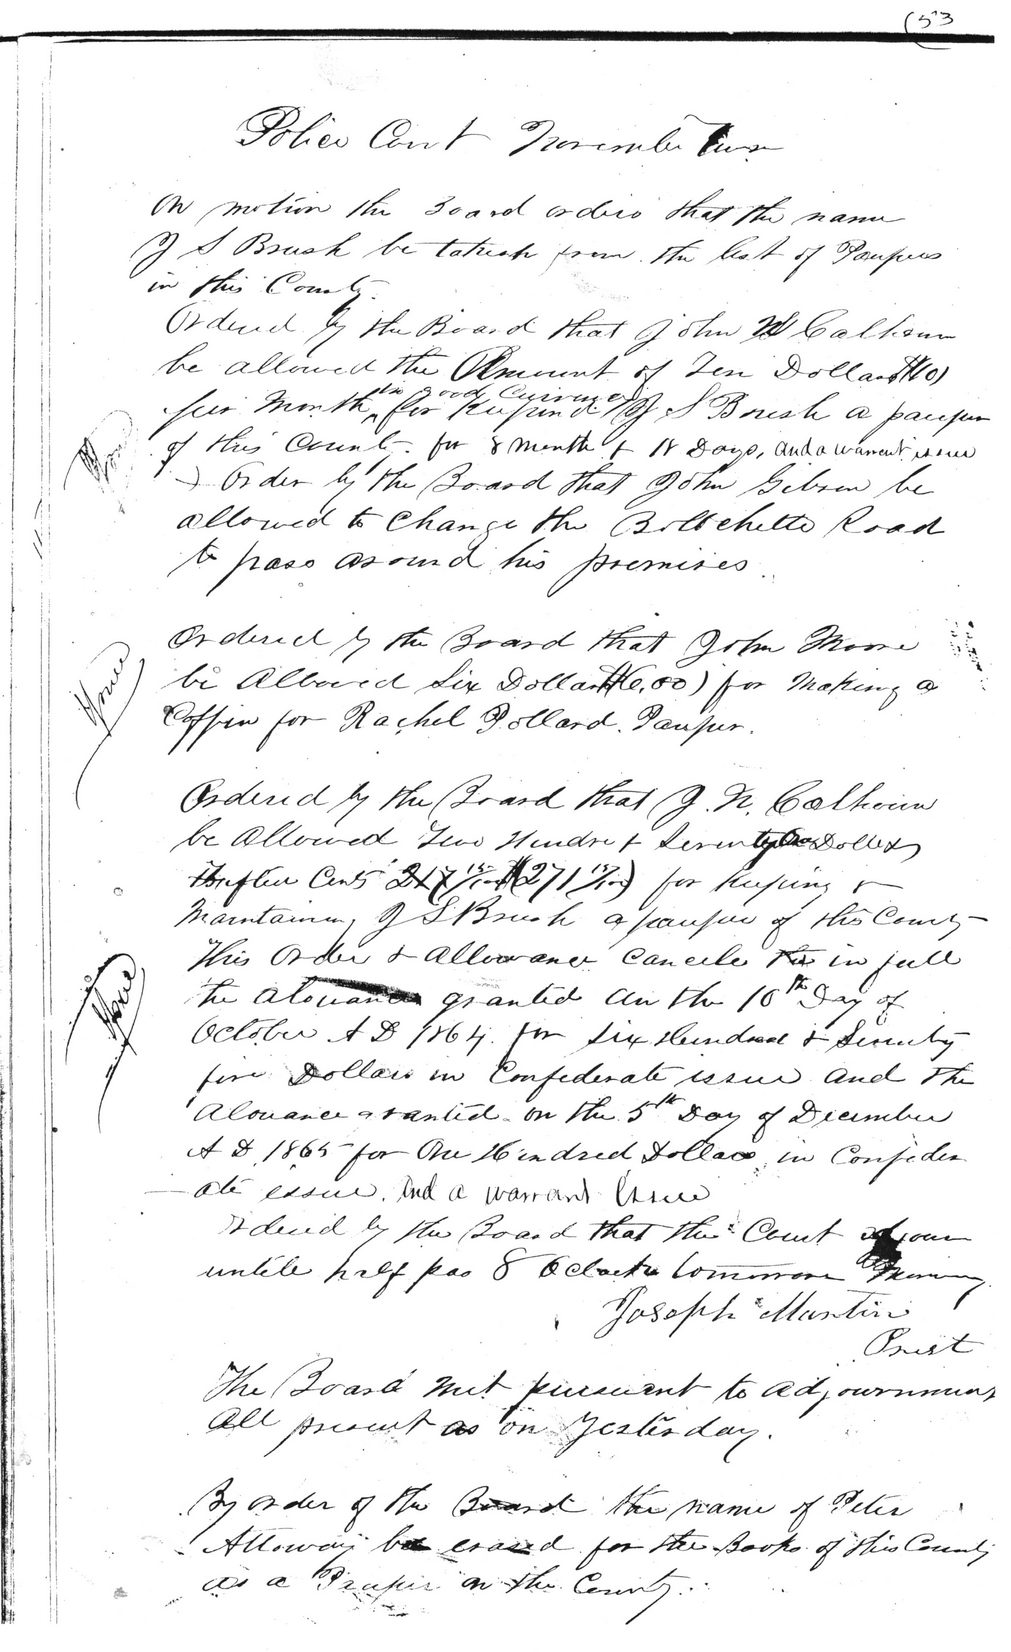 (53
Police Court November Term
On motion the Board orders that the name
J S Brush be taken from the list of Paupers
in this County.
Ordered by the Board that John N Calhoun
be allowed the Amount of Ten Dollars
in good Currency
per Month for Keeping J S Brush a pauper
of this County. for 8 month & 18 Days, and a warrant issue
Order by the Board that John Gibson be
allowed to Change the Road
to pass around his premises
Ordered by the Board that John Moore
be Allowed Six Dollars (6,00) for Making a
Coffin for Rachel Pollard. Pauper.
Ordered by the Board that J. N. Calhoun
be Allowed Two Hundred & Seventy One Dollars
Cents (271 15/100) for Keeping &
Maintaining J S Brush a pauper of this County
This Order & Allowance Cancels in full
the Alouance granted on the 10th Day of
October A D 1864. for Six Hundred & Seventy
five Dollars in Confederate issue and the
Alouance granted on the 5th Day of December
A D 1865 for One Hundred Dollars in Confeder
ate issue. And a warrant Issue
Ordered by the Board that this Court adjourn
untile half pas 8 Oclock tommorow Morning.
Joseph Martin
Prest
The Board met pursuant to adjournment
All present as on Yesterday.
By order of the Board the name of Peter
Alloway be erased for the Books of this County
as a Pauper on the County.